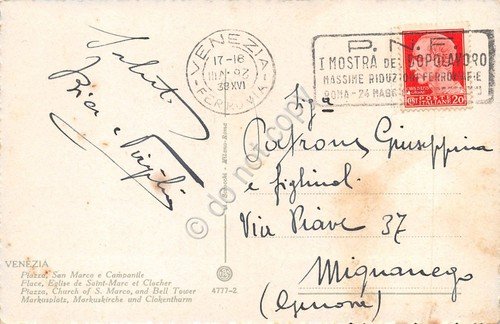 Saluti
Bice e Virgilio
VENEZIA
17-18
38 XVI
FERROVIA
P. N. F.
I MOSTRA DEL DOPOLAVORO
MASSIME RIDUZIONI FERROVIARIE
ROMA - 24 MAGG
POSTE ITALIANE 20
Sig.a
Patrone Giuseppina
e figlind.
Via Piave 37
Mignanego
(Genova)
VENEZIA
Piazza, San Marco e Campanile
Place, Eglise de Saint-Marc et Clocher
Piazza, Church of S. Marco, and Bell Tower
Markusplatz, Markuskirche und Clokentharm
4777-2
do not copy